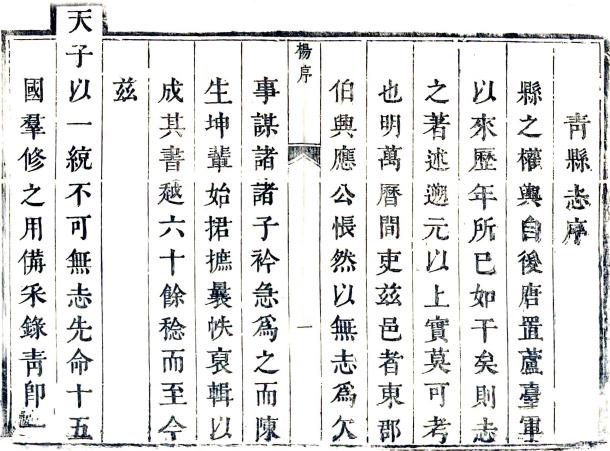 青縣志序
縣之權輿自後唐置蘆臺軍
以來歷年所已如干矣則志
之著述遡元以上實莫可考
也明萬曆間吏茲邑者東郡
伯與應公悵然以無志為欠
楊序
一
事謀諸諸子衿急為之而陳
生坤輩始捃摭曩帙裒輯以
成其書越六十餘稔而至今
茲
天子以一統不可無志先命十五
國羣修之用備采錄青即一